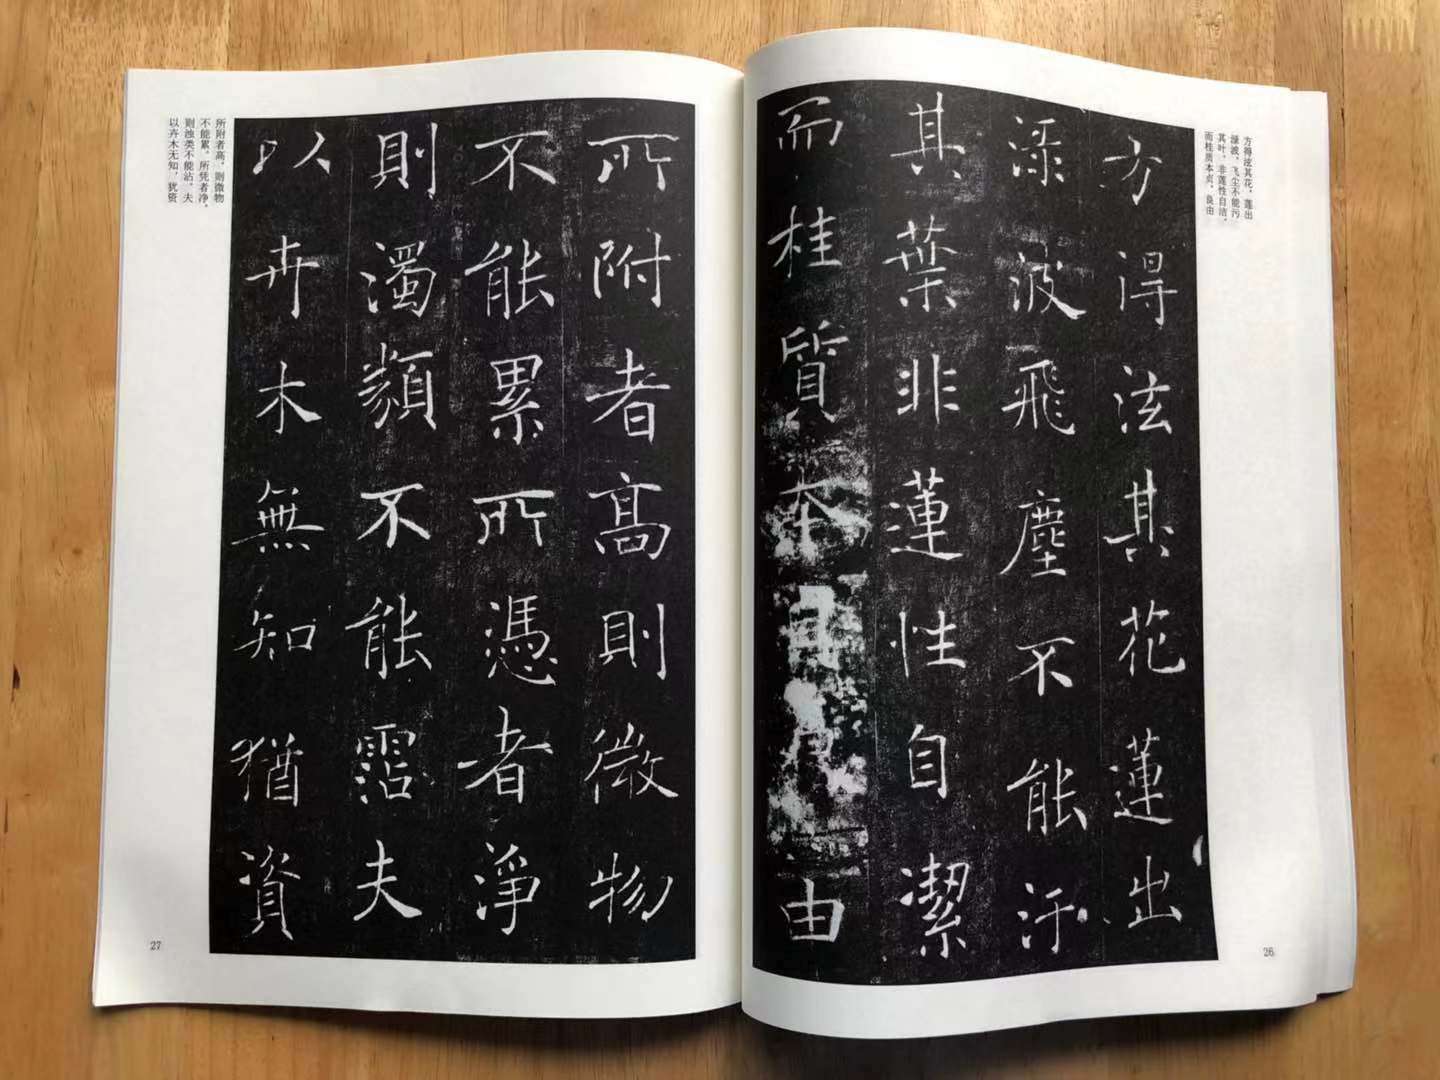 方得泫其花，莲出
渌波，飞尘不能污
其叶，非莲性自洁，
而桂质本贞，良由
方得泫其花蓮出
渌波飛塵不能汙
其葉非蓮性自潔
而桂質本貞良由
26
所附者高則微物
不能累所憑者淨
則濁類不能霑夫
以卉木無知猶資
所附者高，则微物
不能累，所凭者净，
则浊类不能沾，夫
以卉木无知，犹资
27